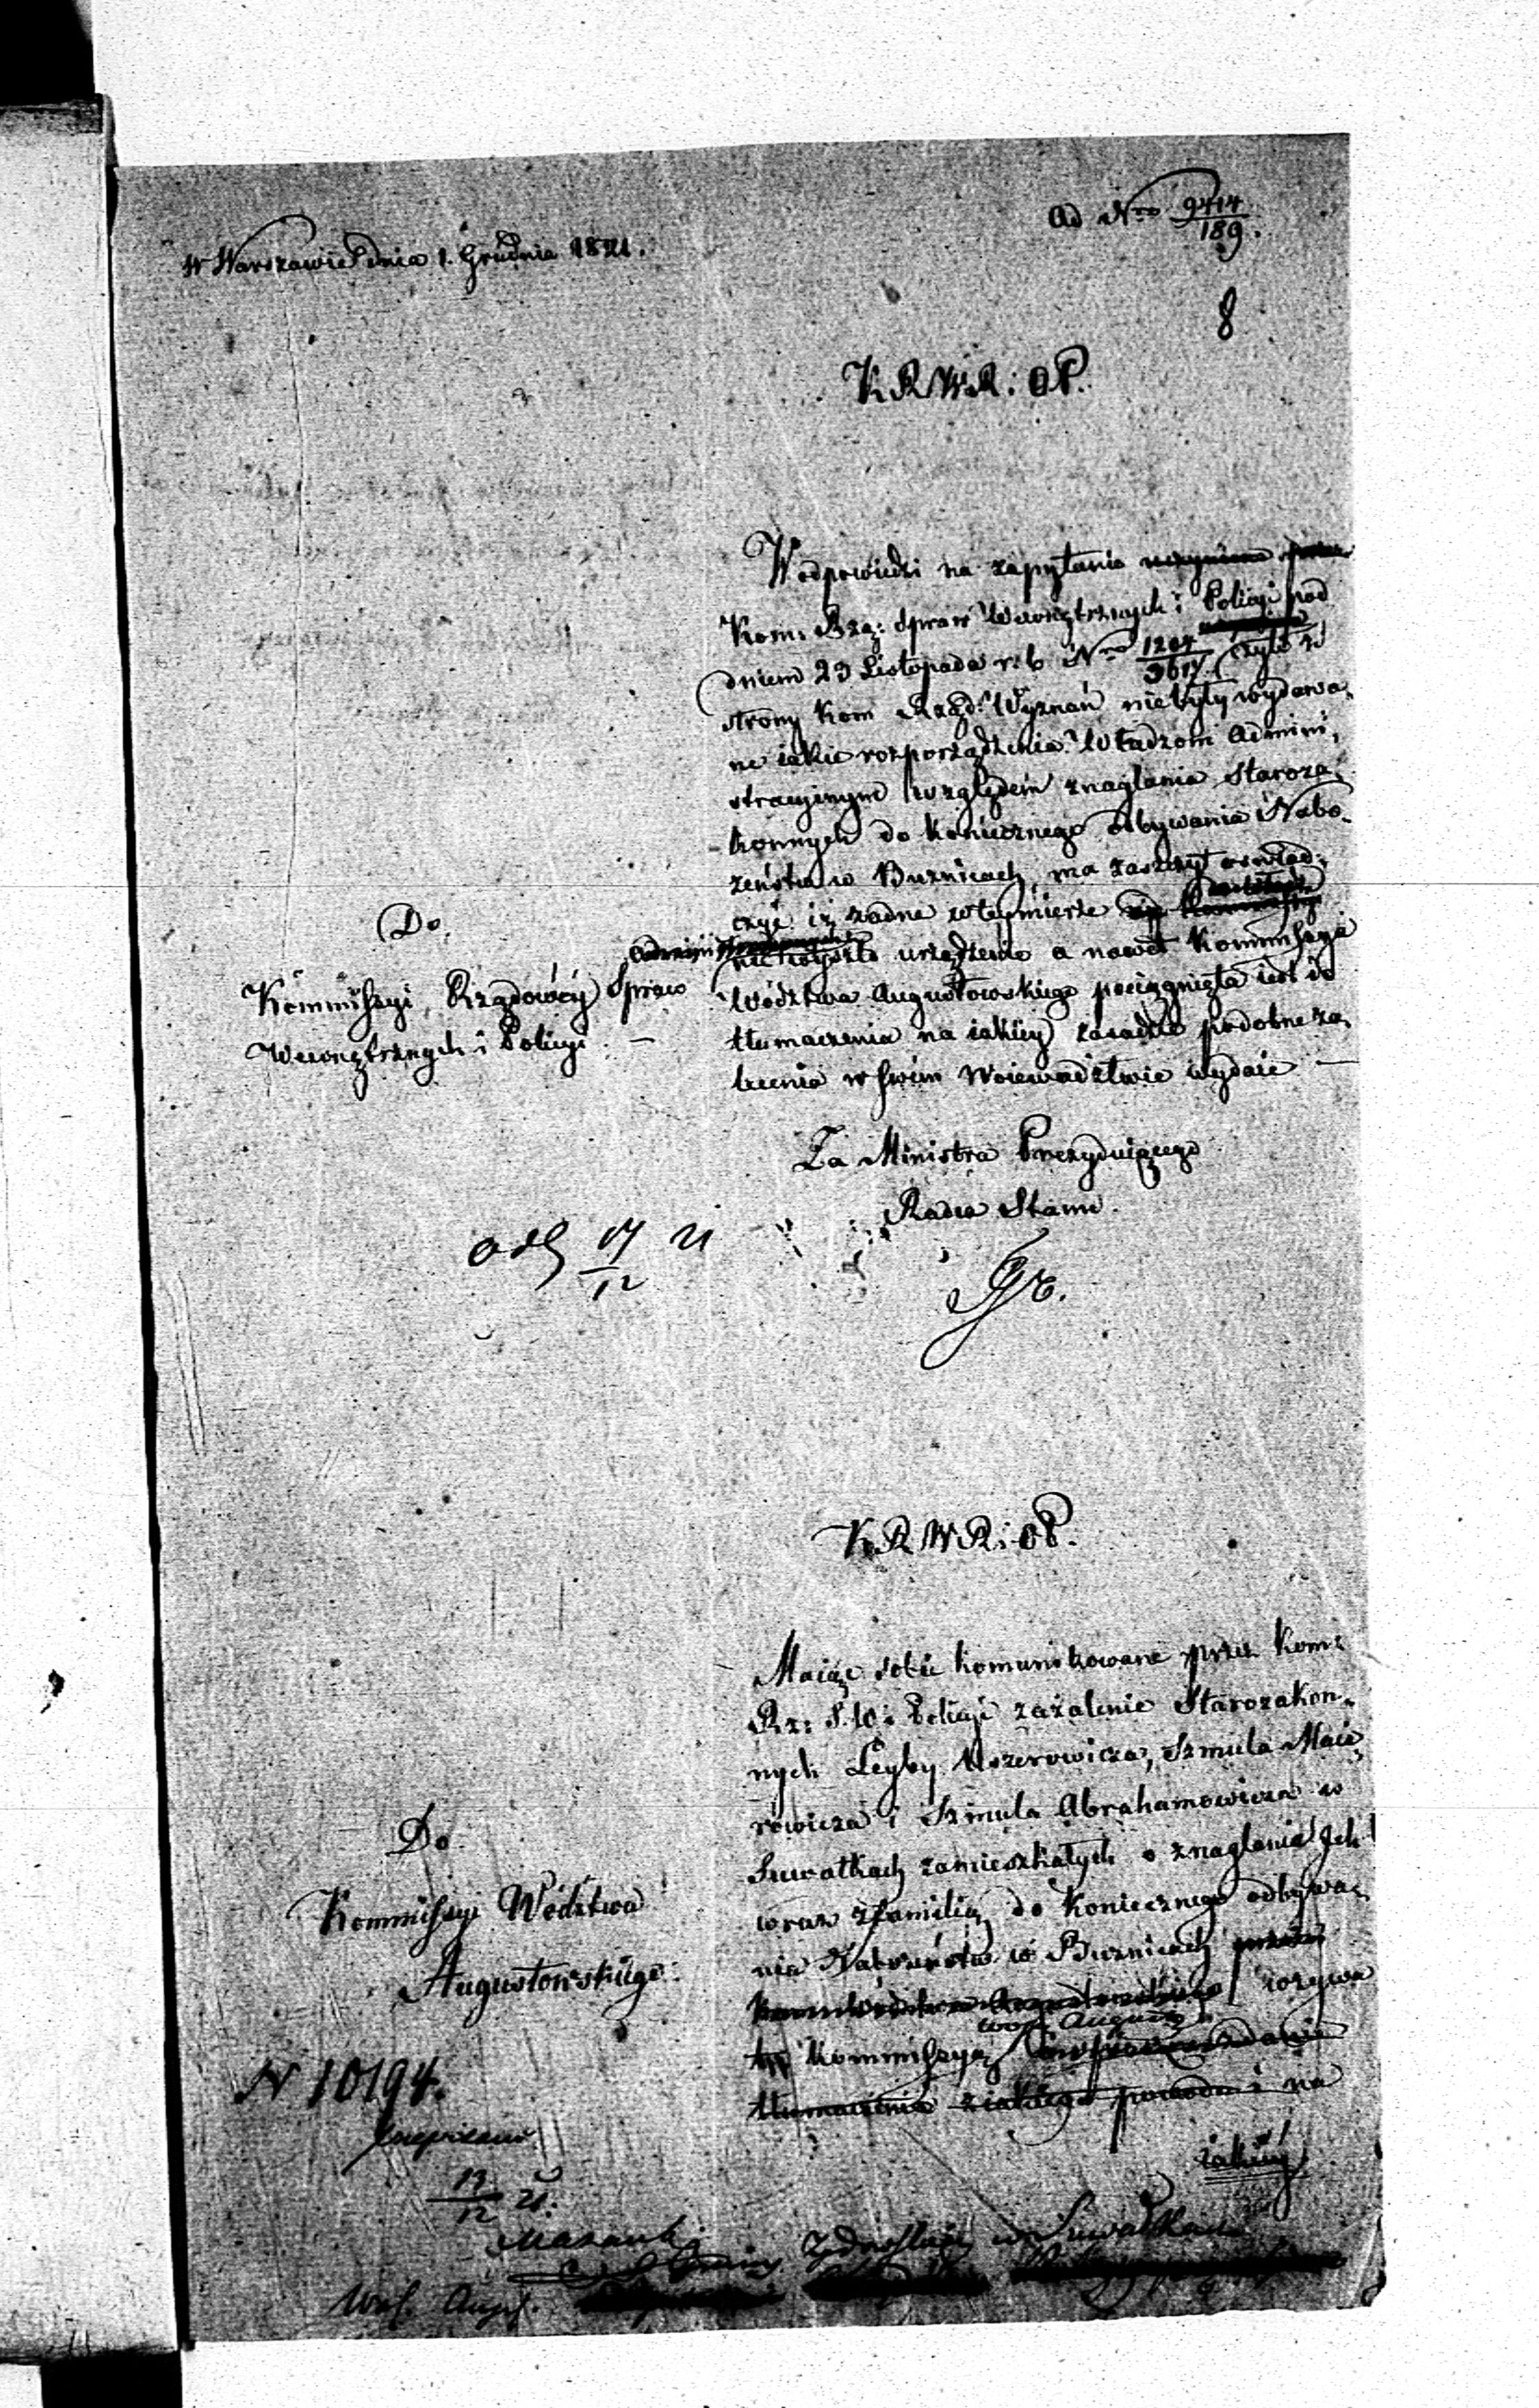 Ad Nro 9414/189.
w Warszawie dnia 1. Grudnia 1821.
8
K R W R: OP.
W odpowiedzi na zapytanie uczynione przez
Kom: Rzą: Spraw Wewnętrznych i Policyi pod
dniem 23 Listopada r. b. Nro 1204/3617 czyli ze
strony Kom Rząd: Wyznań niebyły wydawa-
ne iakie rozporządzenia Władzom Admini-
stracyinym względem znaglania Staroza-
konnych do koniecznego odbywania Nabo-
żeństwa w Bużnicach, ma zaszczyt oswiad-
czyć iż żadne w tey mierze
nie wyszło urządzenie a nawet Kommissya
Wództwa Augustowskiego pociągnięta iest do
tłumaczenia na iakiey zasadzie podobne za-
lecenia w swem Woiewodztwie wydaie —
Do
Kommissyi Rządowéy Spraw
Wewnętrznych i Policyi —
Za Ministra Prezyduiącego
Radca Stanu.
17/12 21
K R W R: OP.
Maiąc sobie komunikowane przez Kom:
Rz: S. W. i Policyi zażalenie Starozakon-
nych Leyby Uszerowicza, Szmula Maie-
rowicza i Szmula Abrahamowicza w
Suwałkach zamieszkałych o znaglanie Ich
wraz z familią do koniecznego odbywa-
nia Nabożeństw w Bużnicach
wzywa
Kommissyą
tłumaczenia z iakiego powodu i na
iakiéy
Do
Kommissyi Wództwa
Augustowskiego.
N 10194.
13/12 21.
w Suwałkach